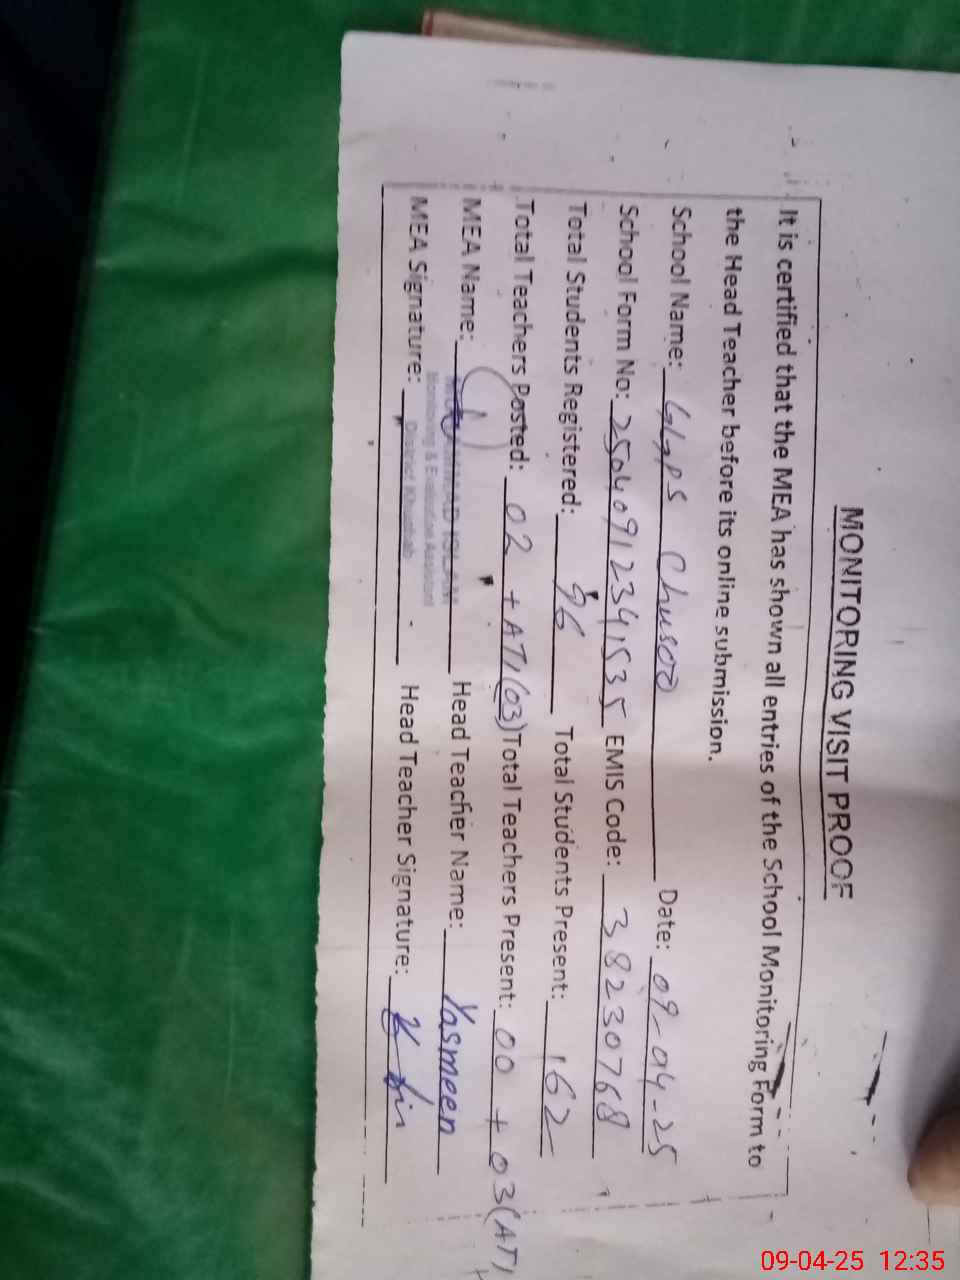 MONITORING VISIT PROOF
It is certified that the MEA has shown all entries of the School Monitoring Form to
the Head Teacher before its online submission.
School Name: GGPS Chusoo Date: 09-04-25
School Form No: 2504091234,535 EMIS Code: 38230768
Total Students Registered: 96 Total Students Present: 162
Total Teachers Posted: 02 + ATI(03) Total Teachers Present: 00 + 03(ATI
MEA Name: ISLAM Head Teacher Name: Yasmeen
Monitoring & Evaluation Assistant
MEA Signature: District Khushab Head Teacher Signature:
09-04-25 12:35